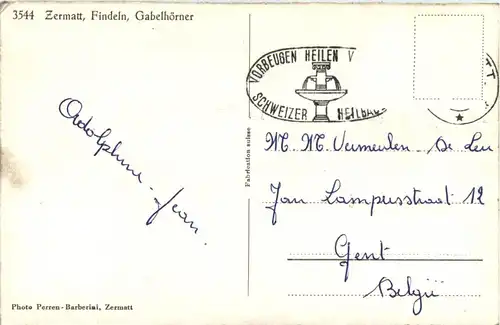 3544 Zermatt, Findeln, Gabelhörner
VORBEUGEN HEILEN V
SCHWEIZER HEILBAD
Adolphine - Jean.
Fabrication suisse
M. M. Vermeulen De Leu
Jan Lampusstraat 12
Gent
België
Photo Perren-Barberini, Zermatt